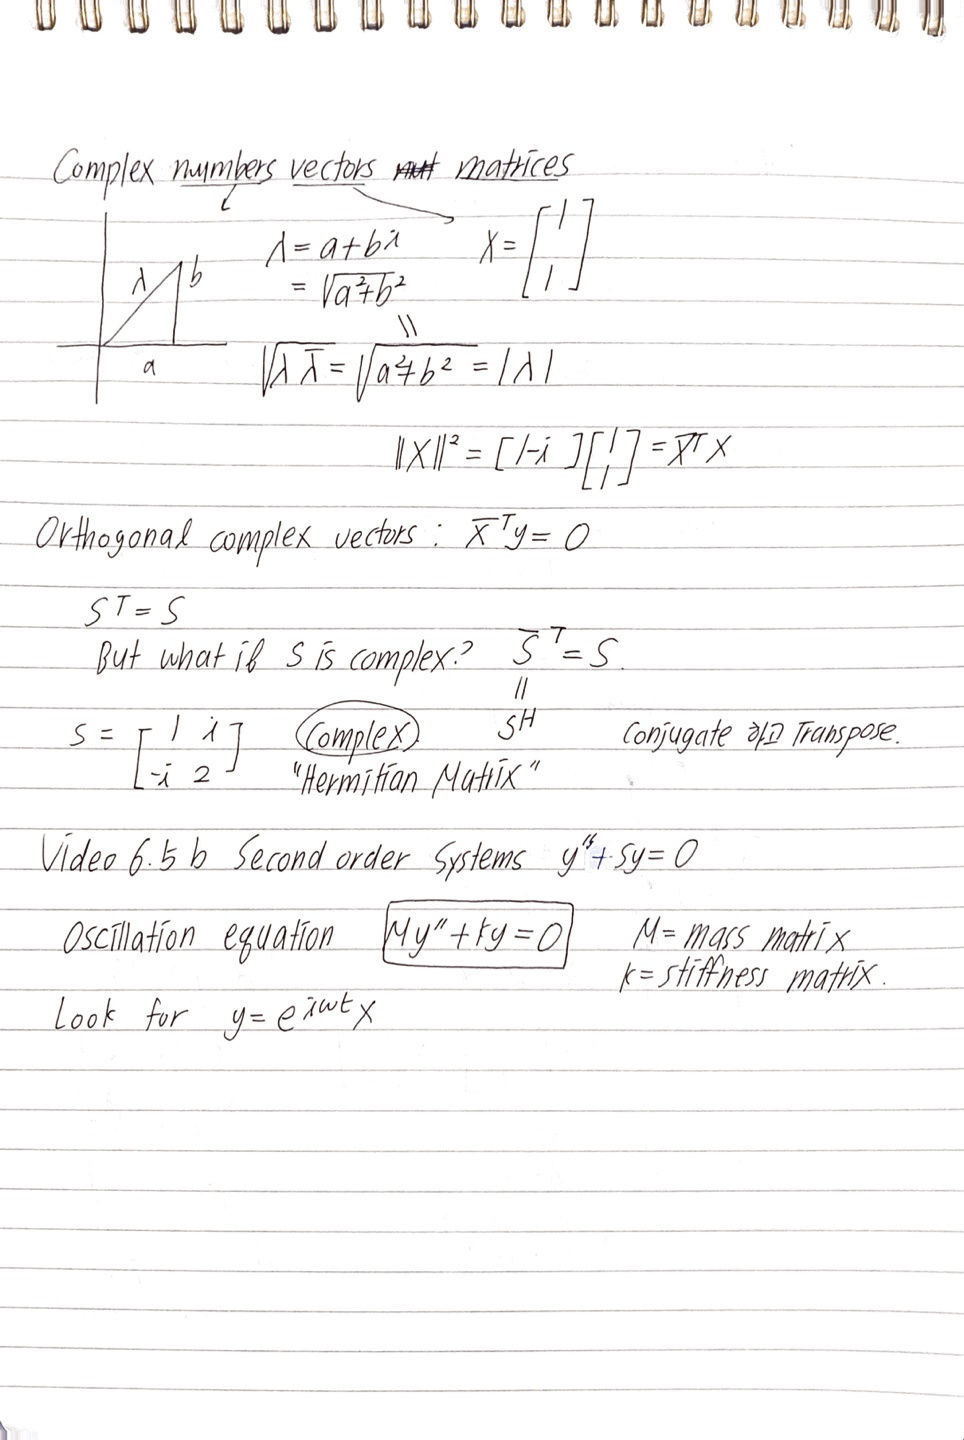 Complex numbers vectors matrices
λ = a+bi
x = [1 1]
= √a²+b²
λ b
a
||
√λλ̄ = √a²+b² = |λ|
||X||² = [1 -i][1 1] = X̄ᵀX
Orthogonal complex vectors : x̄ᵀy = 0
Sᵀ = S
But what if S is complex? S̄ᵀ = S.
||
Sᴴ
S = [1 i
-i 2]
Complex
Conjugate 하고 Transpose.
"Hermitian Matrix"
Video 6.5 b Second order Systems y"+Sy=0
Oscillation equation My"+Ky=0 M= mass matrix
K= stiffness matrix.
Look for y= e^iωt x